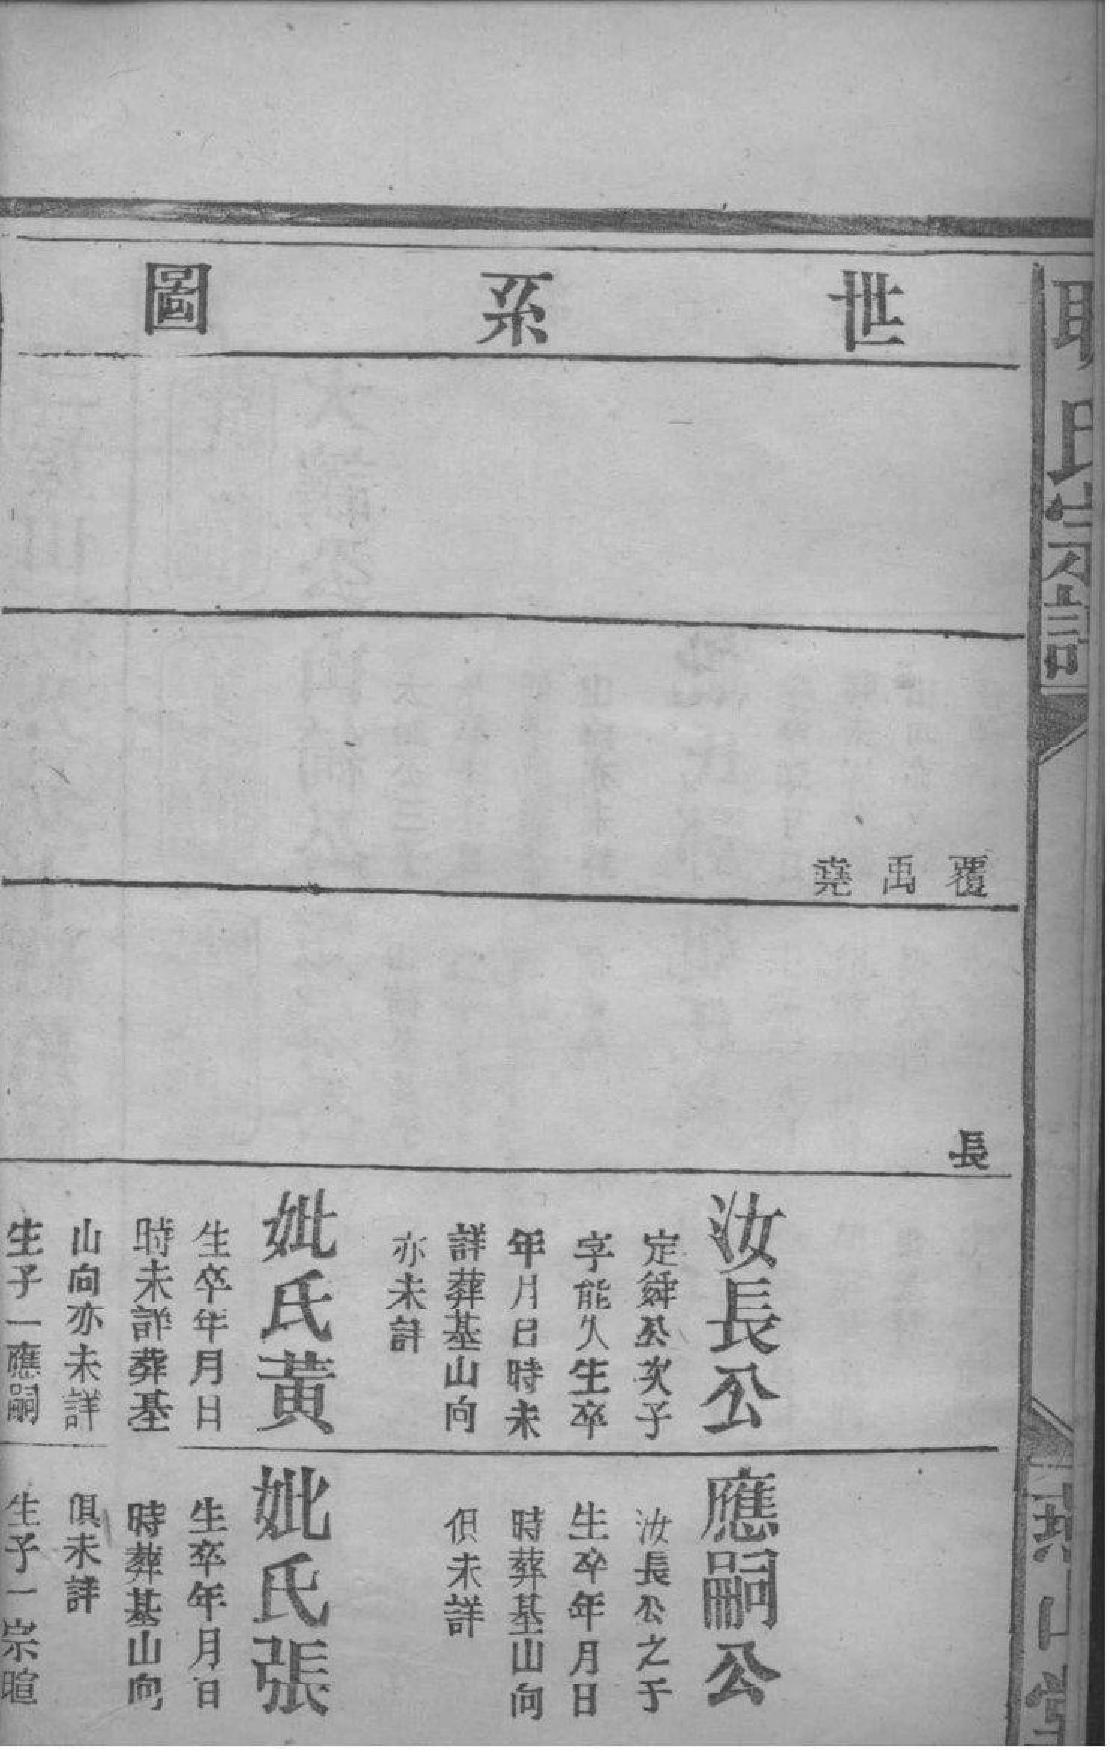 世系圖
覆
禹
堯
長
汝長公
定舜公次子
字能久生卒
年月日時未
詳葬基山向
亦未詳
妣氏黃
生卒年月日
時未詳葬基
山向亦未詳
生子一應嗣
應嗣公
汝長公之子
生卒年月日
時葬基山向
俱未詳
妣氏張
生卒年月日
時葬基山向
俱未詳
生子一宗暄
氏宗譜
山堂